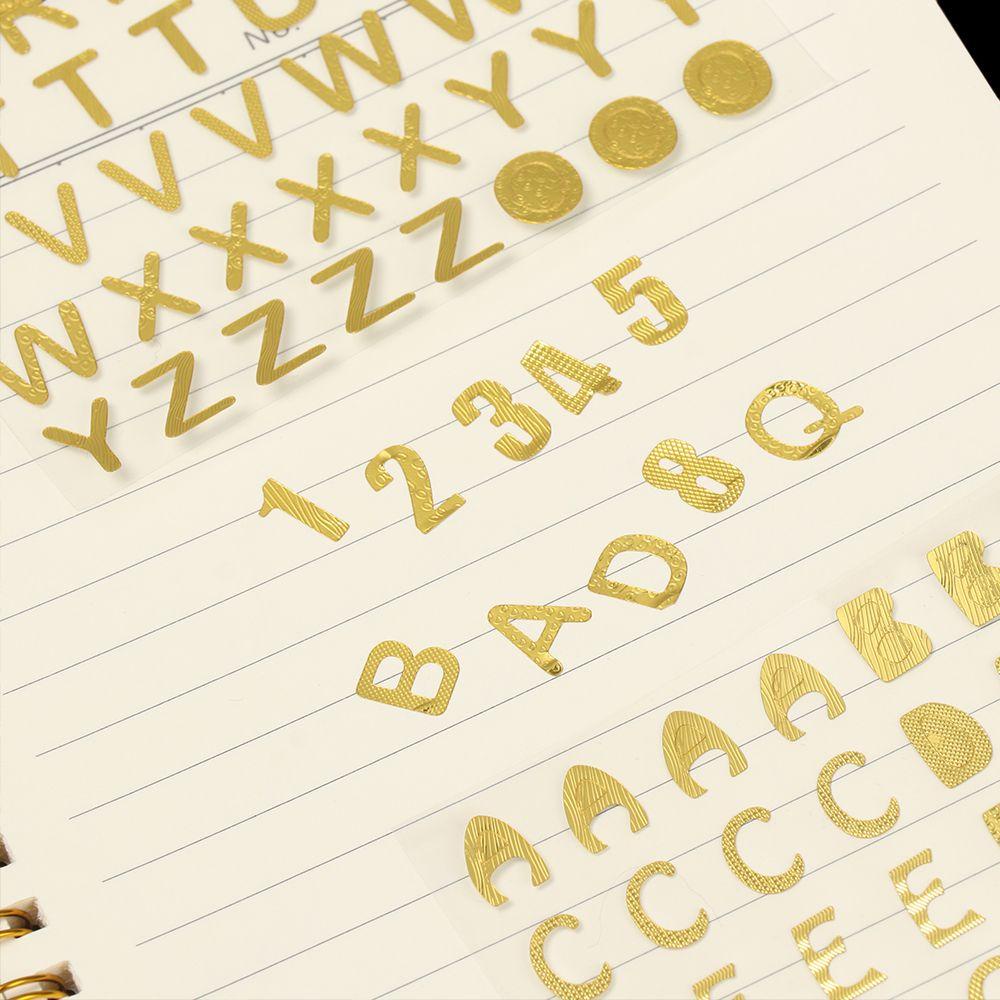 T T U
No.
V V V W W Y Y
W X X X X Y
Y Z Z Z Z
1 2 3 4 5
B A D 8 Q
A A A A B B
C C C C D
E E E